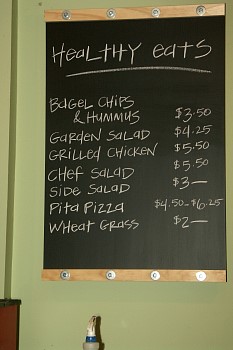 HeaLTHY eaTS
BaGeL CHIPS
& HUMMUS $3.50
GaRDeN SaLaD $4.25
GRILLeD CHICKeN $5.50
CHeF SaLaD $5.50
SIDe SaLaD $3—
PITa PIZZa $4.50-$6.25
WHeaT GRaSS $2—